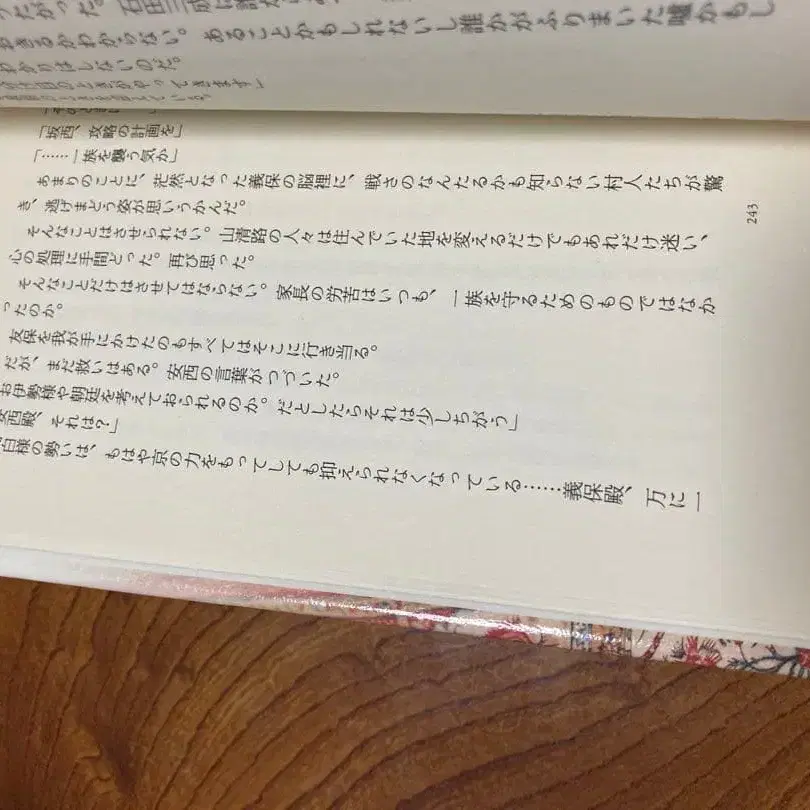 石田三成に
きるかわからない。あることかもしれないし誰かがふりまいた嘘かもし
わかりはしないのだ。
「坂西、攻略の計画を」
「……一族を襲う気か」
あまりのことに、茫然となった義保の脳裡に、戦さのなんたるかも知らない村人たちが驚
き、逃げまどう姿が思いうかんだ。
そんなことはさせられない。山清路の人々は住んでいた地を変えるだけでもあれだけ迷い、
心の処理に手間どった。再び思った。
そんなことだけはさせてはならない。家長の労苦はいつも、一族を守るためのものではなか
ったのか。
友保を我が手にかけたのもすべてはそこに行き当る。
だが、まだ救いはある。安西の言葉がつづいた。
お伊勢様や朝廷を考えておられるのか。だとしたらそれは少しちがう」
安西殿、それは？」
白様の勢いは、もはや京の力をもってしても抑えられなくなっている……義保殿、万に一
243